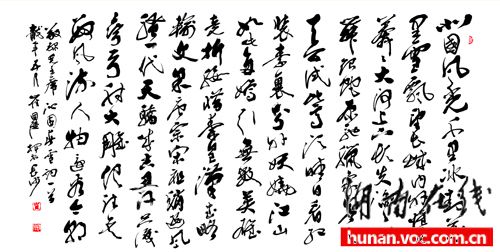 北国风光千里冰封万
里雪飘望长城内外惟余
莽莽大河上下顿失
舞银蛇原驰蜡
天公试比高须晴日看红
装素裹分外妖娆江山
如此多娇引无数英雄
竞折腰惜秦皇汉武略
输文采唐宗宋祖稍逊风
骚一代天骄成吉思汗只识
弯弓射大雕俱往矣
数风流人物还看今朝
敬录毛主席沁园春雪词一首
hunan.voc.com.cn